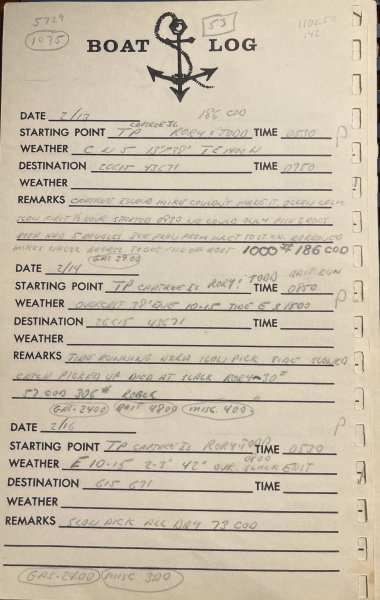 5729
1075
53
1102.50
142
BOAT LOG
DATE 2/13 186 COD
STARTING POINT TP CAPTREE IS. RORY & TODD TIME 0530
WEATHER C N 5 13°-38° TE 1400 W
DESTINATION 26615 43671 TIME 0750
WEATHER
REMARKS CAPTREE ISLAND MIKE COULDN'T MAKE IT OCEAN CALM
SLOW FIRST ½ HOUR STARTED 0830 WE COULD ONLY FISH 2 RODS
BOTH HAD 5 DOUBLES. ICE FLOW FROM INLET TO BORROWED
MIKES TO GET OFF BOAT 1000# 186 COD
GAS 2700
DATE 2/14 TODD BAIT RUN
STARTING POINT TP CAPTREE IS. RORY TIME 0850
WEATHER OVERCAST 38° ENE 10-15 TIDE E S 1500
DESTINATION 26615 43671 TIME
WEATHER
REMARKS TIDE RUNNING HARD SLOW PICK TIDE SLOWED
CATCH PICKED UP DIED AT SLACK RORY-30#
57 COD 306# ROBUR
GAS-2400 BAIT 4800 MISC. 400
DATE 2/16
STARTING POINT TP CAPTREE IS. RORY TODD TIME 0530
WEATHER E 10-15 2-3' 42° OVR. SLACK 0800 EAST
DESTINATION 615 671 TIME
WEATHER
REMARKS SLOW PICK ALL DAY 73 COD
GAS-2400 MISC 300